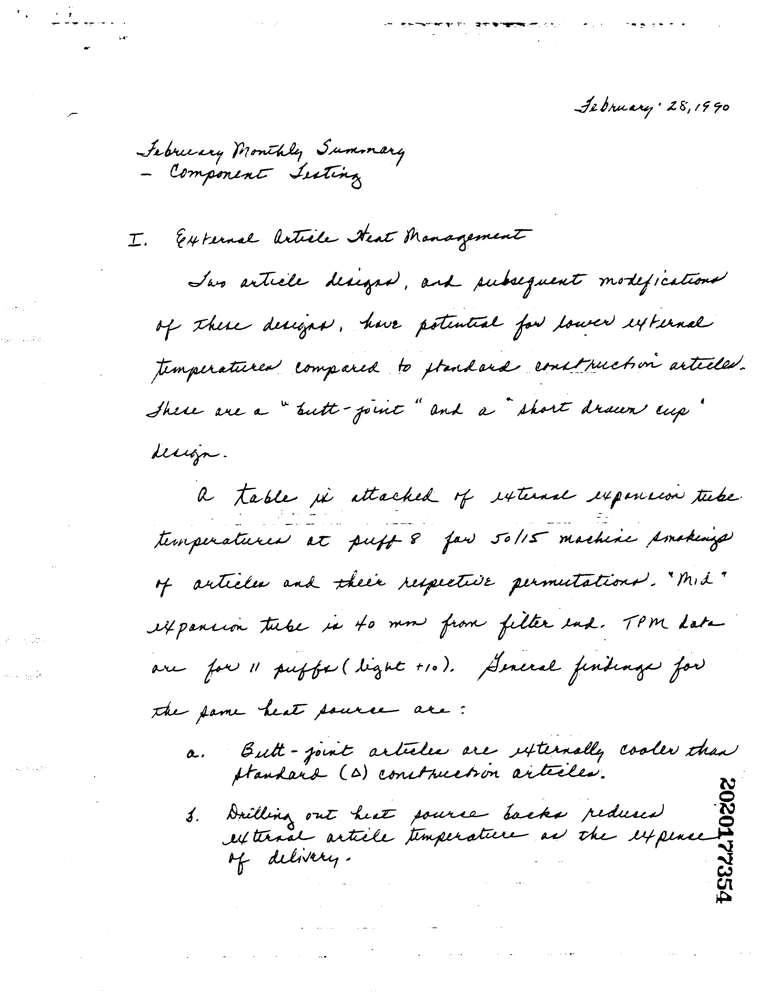 February 28, 1990
February Monthly Summary
- Component Testing
I. External Article Heat Management
Two article designs, and subsequent modifications
of these designs, have potential for lower external
temperatures compared to standard construction articles.
These are a "butt-joint" and a "short drawn cup"
design.
A table is attached of external expansion tube
temperatures at puff 8 for 50/15 machine smokings
of articles and their respective permutations. "Mid"
expansion tube is 40 mm from filter end. TPM data
are for 11 puffs (light +10). General findings for
the same heat source are:
a. Butt-joint articles are externally cooler than
standard (Δ) construction articles.
b. Drilling out heat source backs reduces
external article temperature as the expense
of delivery.
2020177354